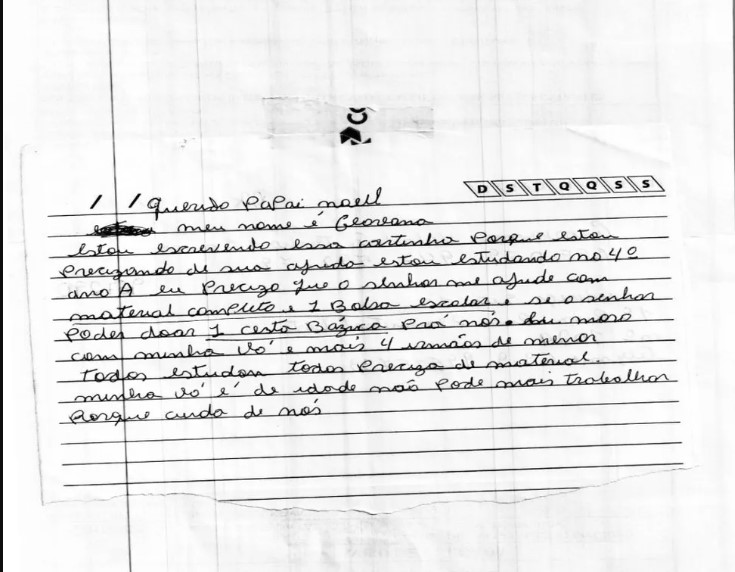 CO
D S T Q Q S S
/ / Querido PaPai noell
meu nome é Geovana
estou escrevendo essa cartinha Porque estou
Precizando de sua ajuda estou estudando no 4º
ano A eu Precizo que o senhor me ajude com
material completo e 1 Bolsa escolar e se o senhor
Poder doar 1 cesta Bázica Pra nós. Eu moro
com minha vó e mais 4 irmãos de menor
Todos estudam todos Preciza de material.
minha vó é de idade não Pode mais trabalhar
Porque cuida de nós